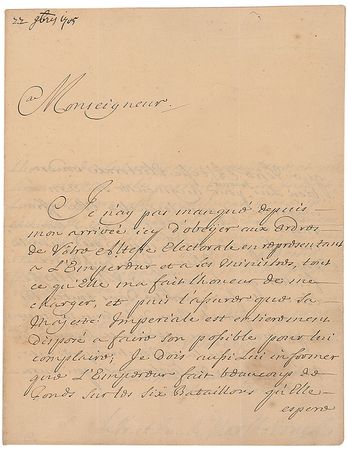 22 9bris 1705
Monseigneur.
Je n'ay pas manqué depuis
mon arrivée icy d'obeyer aux ordres
de Votre Altesse Electorale en representant
a L'Empereur et a ses Ministres, tout
ce qu'Elle m'a fait l'honeur de me
charger, et puis l'asseurer que sa
Majesté Imperiale est entierement
disposé a faire son possible pour lui
complaire; Je Dois aussi Lui informer
que L'Empereur fait beaucoup de
Fonds sur les six Bataillons qu'Elle
espere